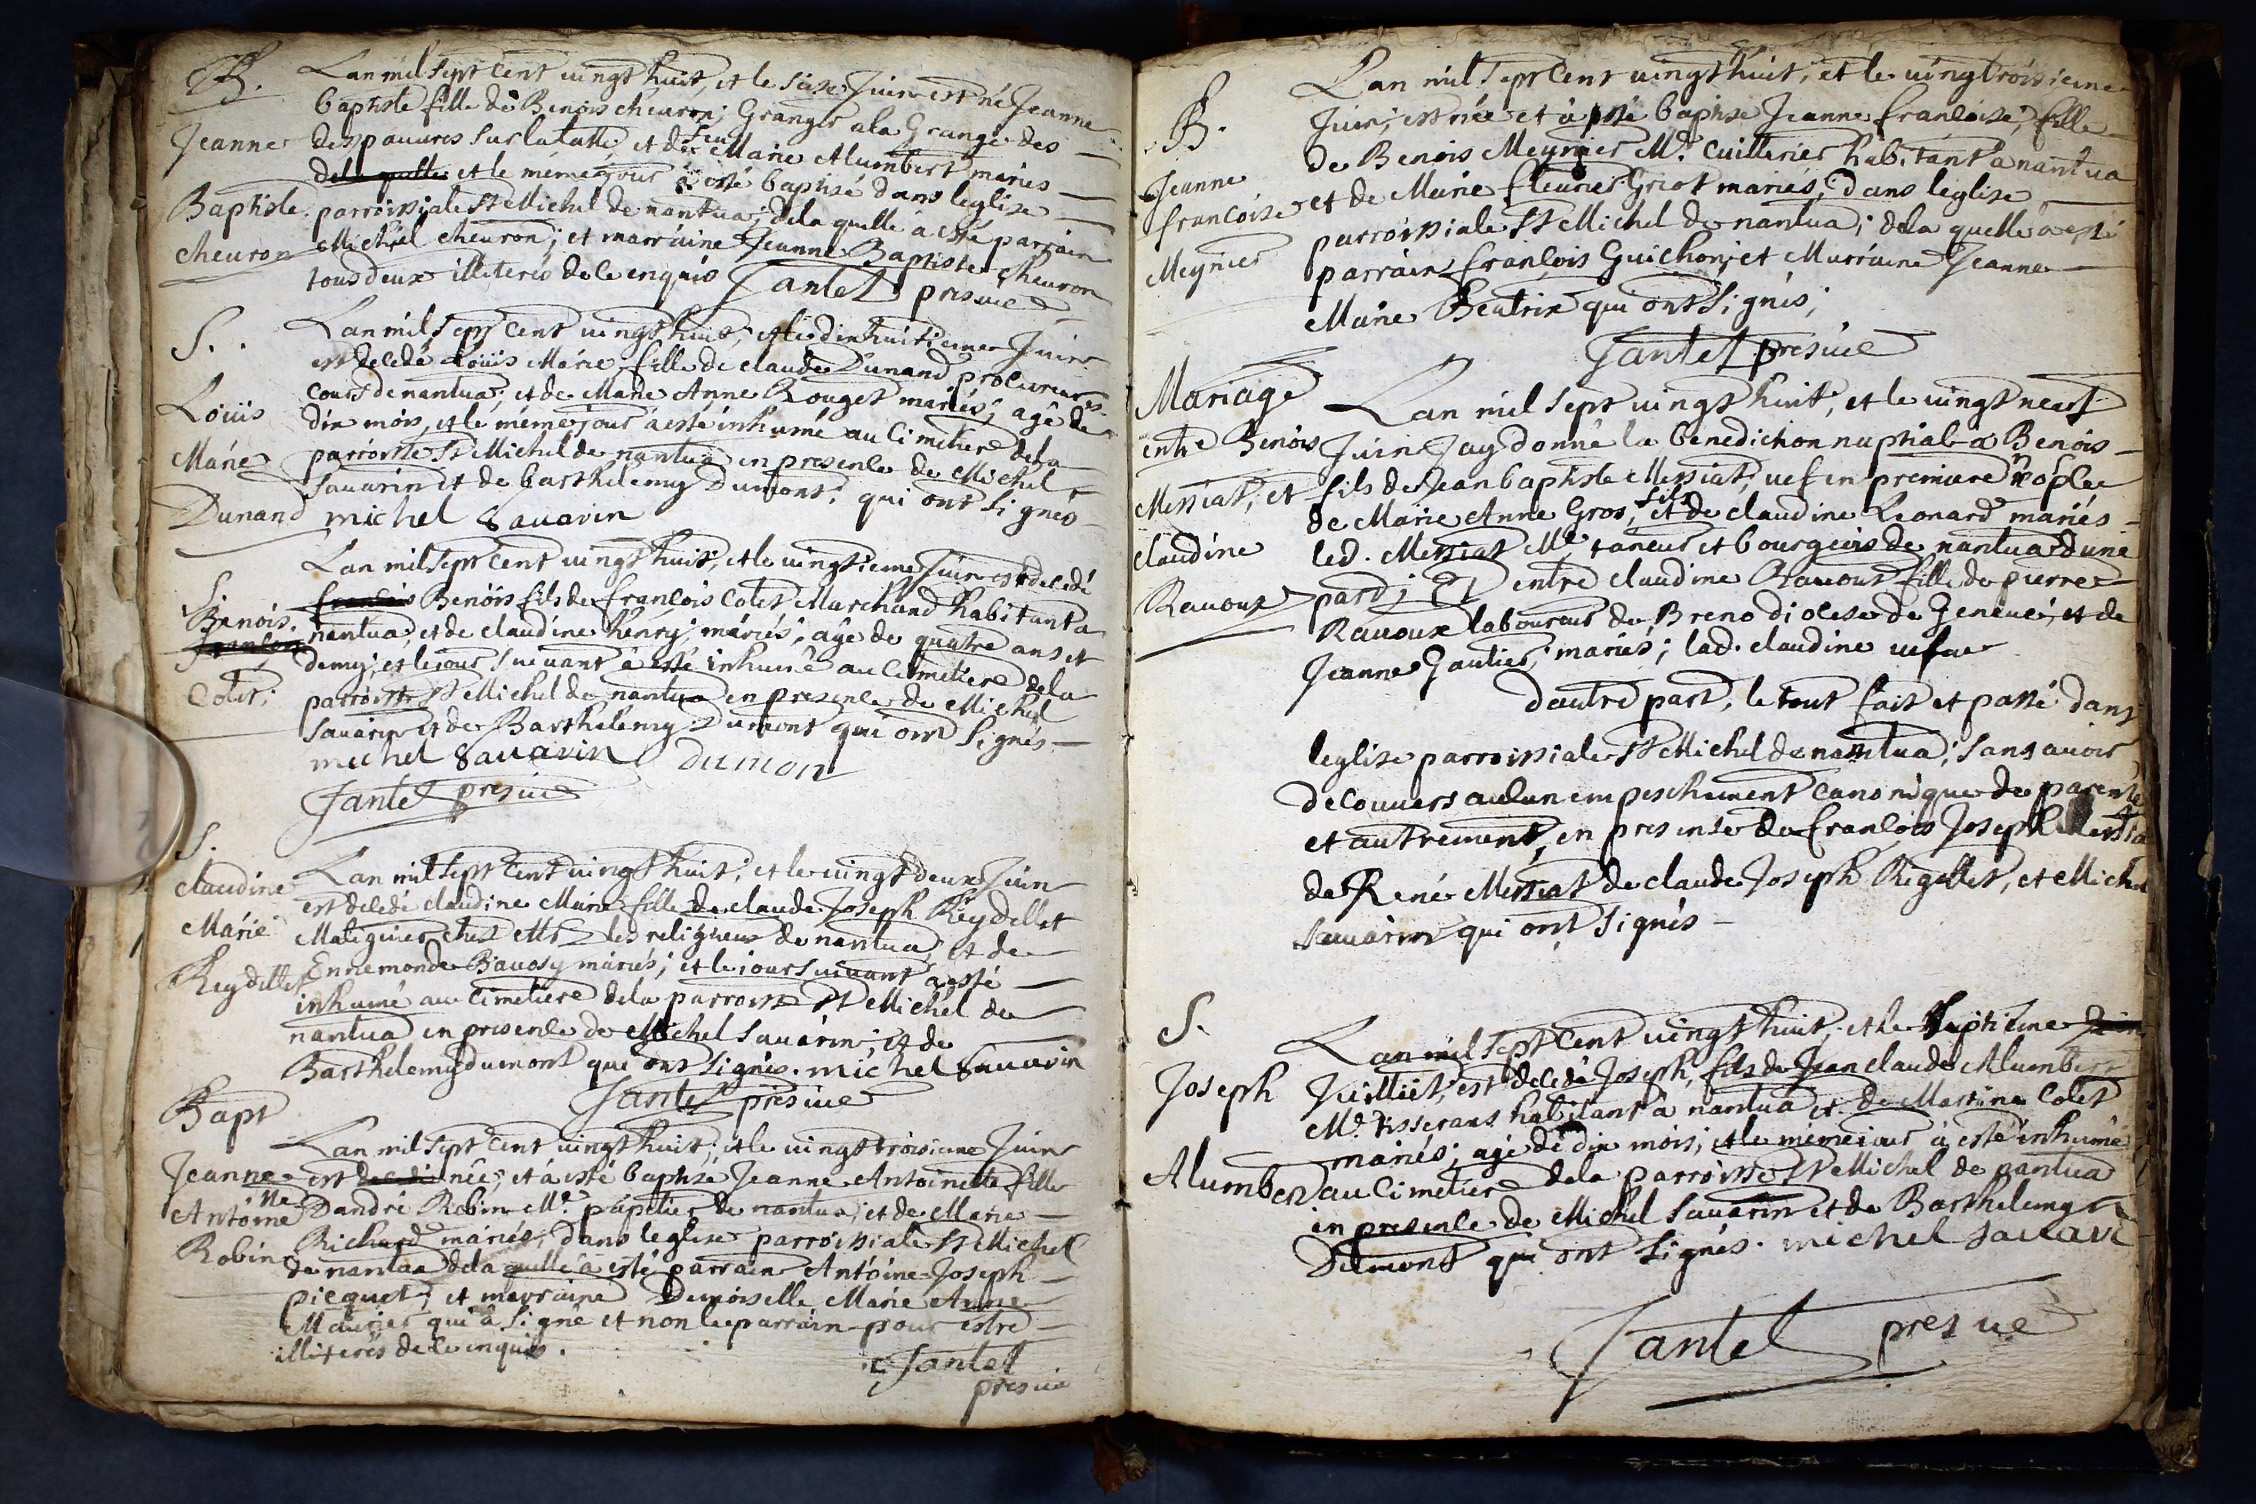 B.
Lan mil sept cent vingt huit, et le seize Juin est né Jeanne
baptiste fille de Benois cheuron; Granger a la Grange des
Jeanne
des pauures sur la tatte, et de feu Marie Alumbert mariés
de la quelle et le méme jour à esté baptisé dans leglise
Baptiste
parroissiale St Michel de nantua; dela quelle à esté parrain
cheuron
Michel cheuron; et marraine Jeanne Baptiste cheuron
tous deux illiterés de ce enquis Jantet presvic
S.
Lan mil sept cent vingt huit, et le dixhuitieme Juin
est decedé Loüis Marie fille de claude Dunand procureur es
Loüis
cours de nantua; et de Marie Anne Rouget mariés; agé de
dix mois, et le méme jour à esté inhumé au Cimetiere dela
Marie
parroisse St Michel de nantua en presence de Michel
Sauarin et de barthelemy Dumont; qui ont signés
Dunand
michel Sauarin
Lan mil sept cent vingt huit, et le vingtieme Juin est decedé
S.
francois Benois fils de francois Colet Marchand habitant a
Benois
francois
nantua, et de claudine henry; mariés; agé de quatre ans et
demy; et le jour sueuant à esté inhumé au Cimetiere dela
Colet;
parroisse St Michel de nantua en presence de Michel
Sauarin et de Barthelemy Dumont qui ont signés
michel Sauarin dumon
Jantet presvic
S.
claudine
Lan mil sept cent vingt huit; et le vingt deux Juin
est decedé claudine Marie fille de claude Joseph Reydellet
Marie
Maliguier chez Mrs les religieux de nantua, et de
Reydellet
Ennemonde Bauosy mariés; et le jour suiuant à esté
inhumé au Cimetiere dela parroisse St Michel de
nantua en presence de Michel Sauarin; et de
Barthelemy dumont qui ont signés. michel Sauarin
Jantet presvic
Bapt
Lan mil sept cent vingt huit; et le vingt troisieme Juin
Jeanne
est decedé née; et à esté baptisé Jeanne Antoinette fille
Antoinette
Dandré Robin Me. papetier de nantua; et de Marie
Robin
Richard mariés; dans leglise parroissiale St Michel
de nantua dela quelle à esté parrain Antoine Joseph
picquet; et marraine Demoiselle Marie Anne
Maurier qui à signé et non le parrain pour estre
illiterés de ce enquis.
Jantet
presvic
Lan mil sept Cent vingt huit; et le vingtroisieme
B.
Juin; est née et à esté baptisé Jeanne francoise; fille
de Benois Meynier Me. Cuillerier habitant à nantua
Jeanne
et de Marie fleurie Griot mariés; dans leglise
francoise
parroissiale St Michel de nantua; dela quelle à esté
Meynier
parrain francois Guichon; et Marraine Jeanne
Marie Beatrix qui ont signés;
Jantet presvic
Mariage
Lan mil sept vingt huit, et le vingt neuf
entre Benois
Juin Jay donné la benediction nuptiale à Benois
Messiat; et
fils de Jean baptiste Messiat, uef en premiere nopce
de Marie Anne Gros, fils et de claudine Leonard mariés
claudine
led. Messiat Me. taneur et bourgeois de nantua dune
Rauoux
part; Et entre claudine Rauoux fille de pierre
Rauoux laboureur de Breno diocese de Geneue; et de
Jeanne Gautier; mariés; lad. claudine uefue
dautre part, le tout fait et passé dans
leglise parroissiale St Michel de nantua; sans auoir
decouuers aucun empeschement canonique de parenté
et autrement, en presence de francois Joseph Messiat
de René Messiat de claude Joseph Regellet, et Michel
Sauarin qui ont signés
S.
Lan mil sept Cent vingt huit; et le septieme Juin
Joseph
Juilliet, est decedé Joseph, fils de Jean claude Alumbert
Me. tisserans habitant à nantua et de Martine Colet
mariés; agé de dix mois; et le méme jour à esté inhumé
Alumbert
au Cimetiere dela parroisse St Michel de nantua
in presence de Michel Sauarin et de Barthelemy
Dumont qui ont signés. michel Sauari
Jantet presvic